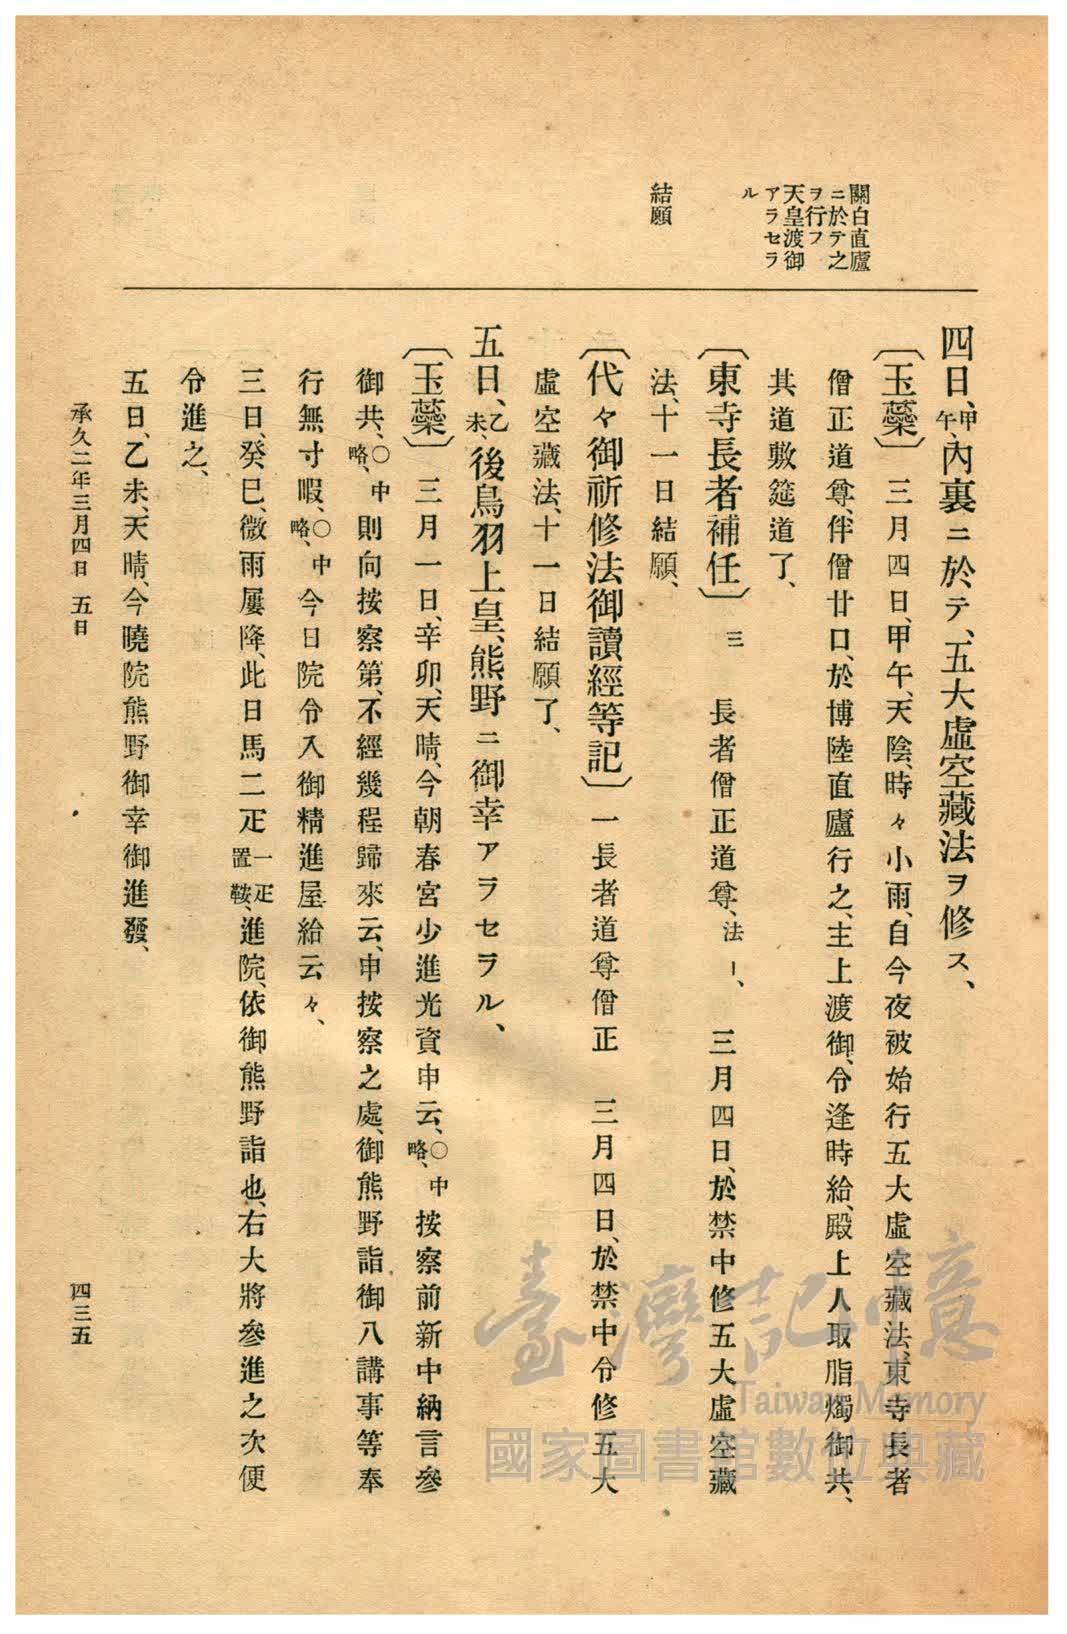 關白直廬
ニ於テ之
ヲ行フ
天皇渡御
アラセラ
ル
結願
四日、甲午、內裏ニ於テ、五大虛空藏法ヲ修ス、
〔玉蘂〕　三月四日、甲午、天陰、時々小雨、自今夜被始行五大虛空藏法、東寺長者
僧正道尊、伴僧廿口、於博陸直廬行之、主上渡御、令逢時給、殿上人取脂燭御共、
其道敷筵道了、
〔東寺長者補任〕三　長者僧正道尊、法ー、　三月四日、於禁中修五大虛空藏
法、十一日結願、
〔代々御祈修法御讀經等記〕一長者道尊僧正　三月四日、於禁中令修五大
虛空藏法、十一日結願了、
五日、乙未、後鳥羽上皇、熊野ニ御幸アラセラル、
〔玉蘂〕　三月一日、辛卯、天晴、今朝春宮少進光資申云、〇中略、按察前新中納言參
御共、〇中略、則向按察第、不經幾程歸來云、申按察之處、御熊野詣御八講事等奉
行無寸暇、〇中略、今日院令入御精進屋給云々、
三日、癸巳、微雨屢降、此日馬二疋一疋置鞍、進院、依御熊野詣也、右大將參進之次便
令進之、
五日、乙未、天晴、今曉院熊野御幸御進發、
承久二年三月四日　五日
四三五
臺灣記憶
Taiwan Memory
國家圖書館數位典藏